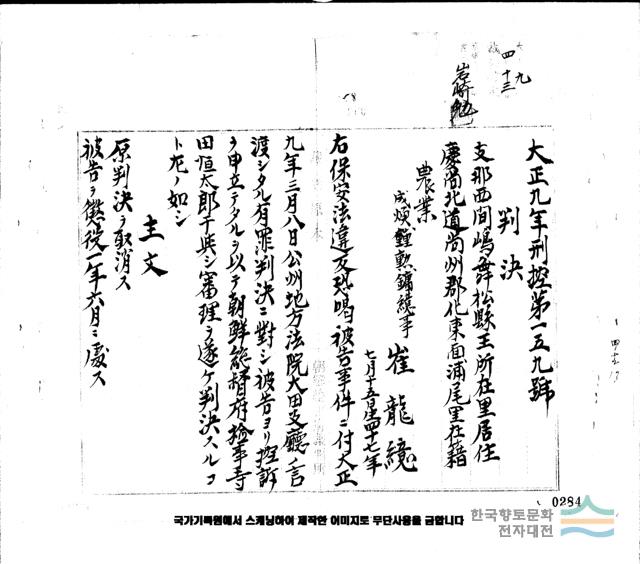 九
四 十三
大正九年刑控第一五九號
判決
支那西間嶋舞松縣王所在里居住
慶尚北道尚州郡化東面浦尾里在籍
農業
崔龍鐃事
崔龍鐃
七月十五日生四十七年
右保安法違反恐喝被告事件ニ付大正
九年三月八日公州地方法院大田支廳ノ言
渡シタル有罪判決ニ對シ被告ヨリ控訴
ヲ申立テタルヲ以テ朝鮮總督府檢事寺
田恒太郎干與シ審理ヲ遂ケ判決スルコ
ト左ノ如シ
主文
原判決ヲ取消ス
被告ヲ懲役一年六月ニ處ス
0284
국가기록원에서 스캐닝하여 제작한 이미지로 무단사용을 금합니다
한국향토문화
전자대전